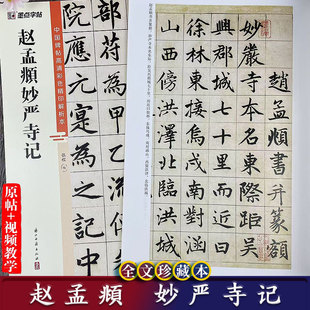 墨点字帖
赵孟頫妙严寺记
中国碑帖高清彩色精印解析本
部符為甲
院應元寔為之記中
趙孟頫書并篆額
妙嚴寺本名東際距吳
興郡城七十里而近曰
徐林東接烏戍南對涵
山西傍洪澤北臨洪城
原帖+视频教学
全文珍藏本
赵孟頫 妙严寺记